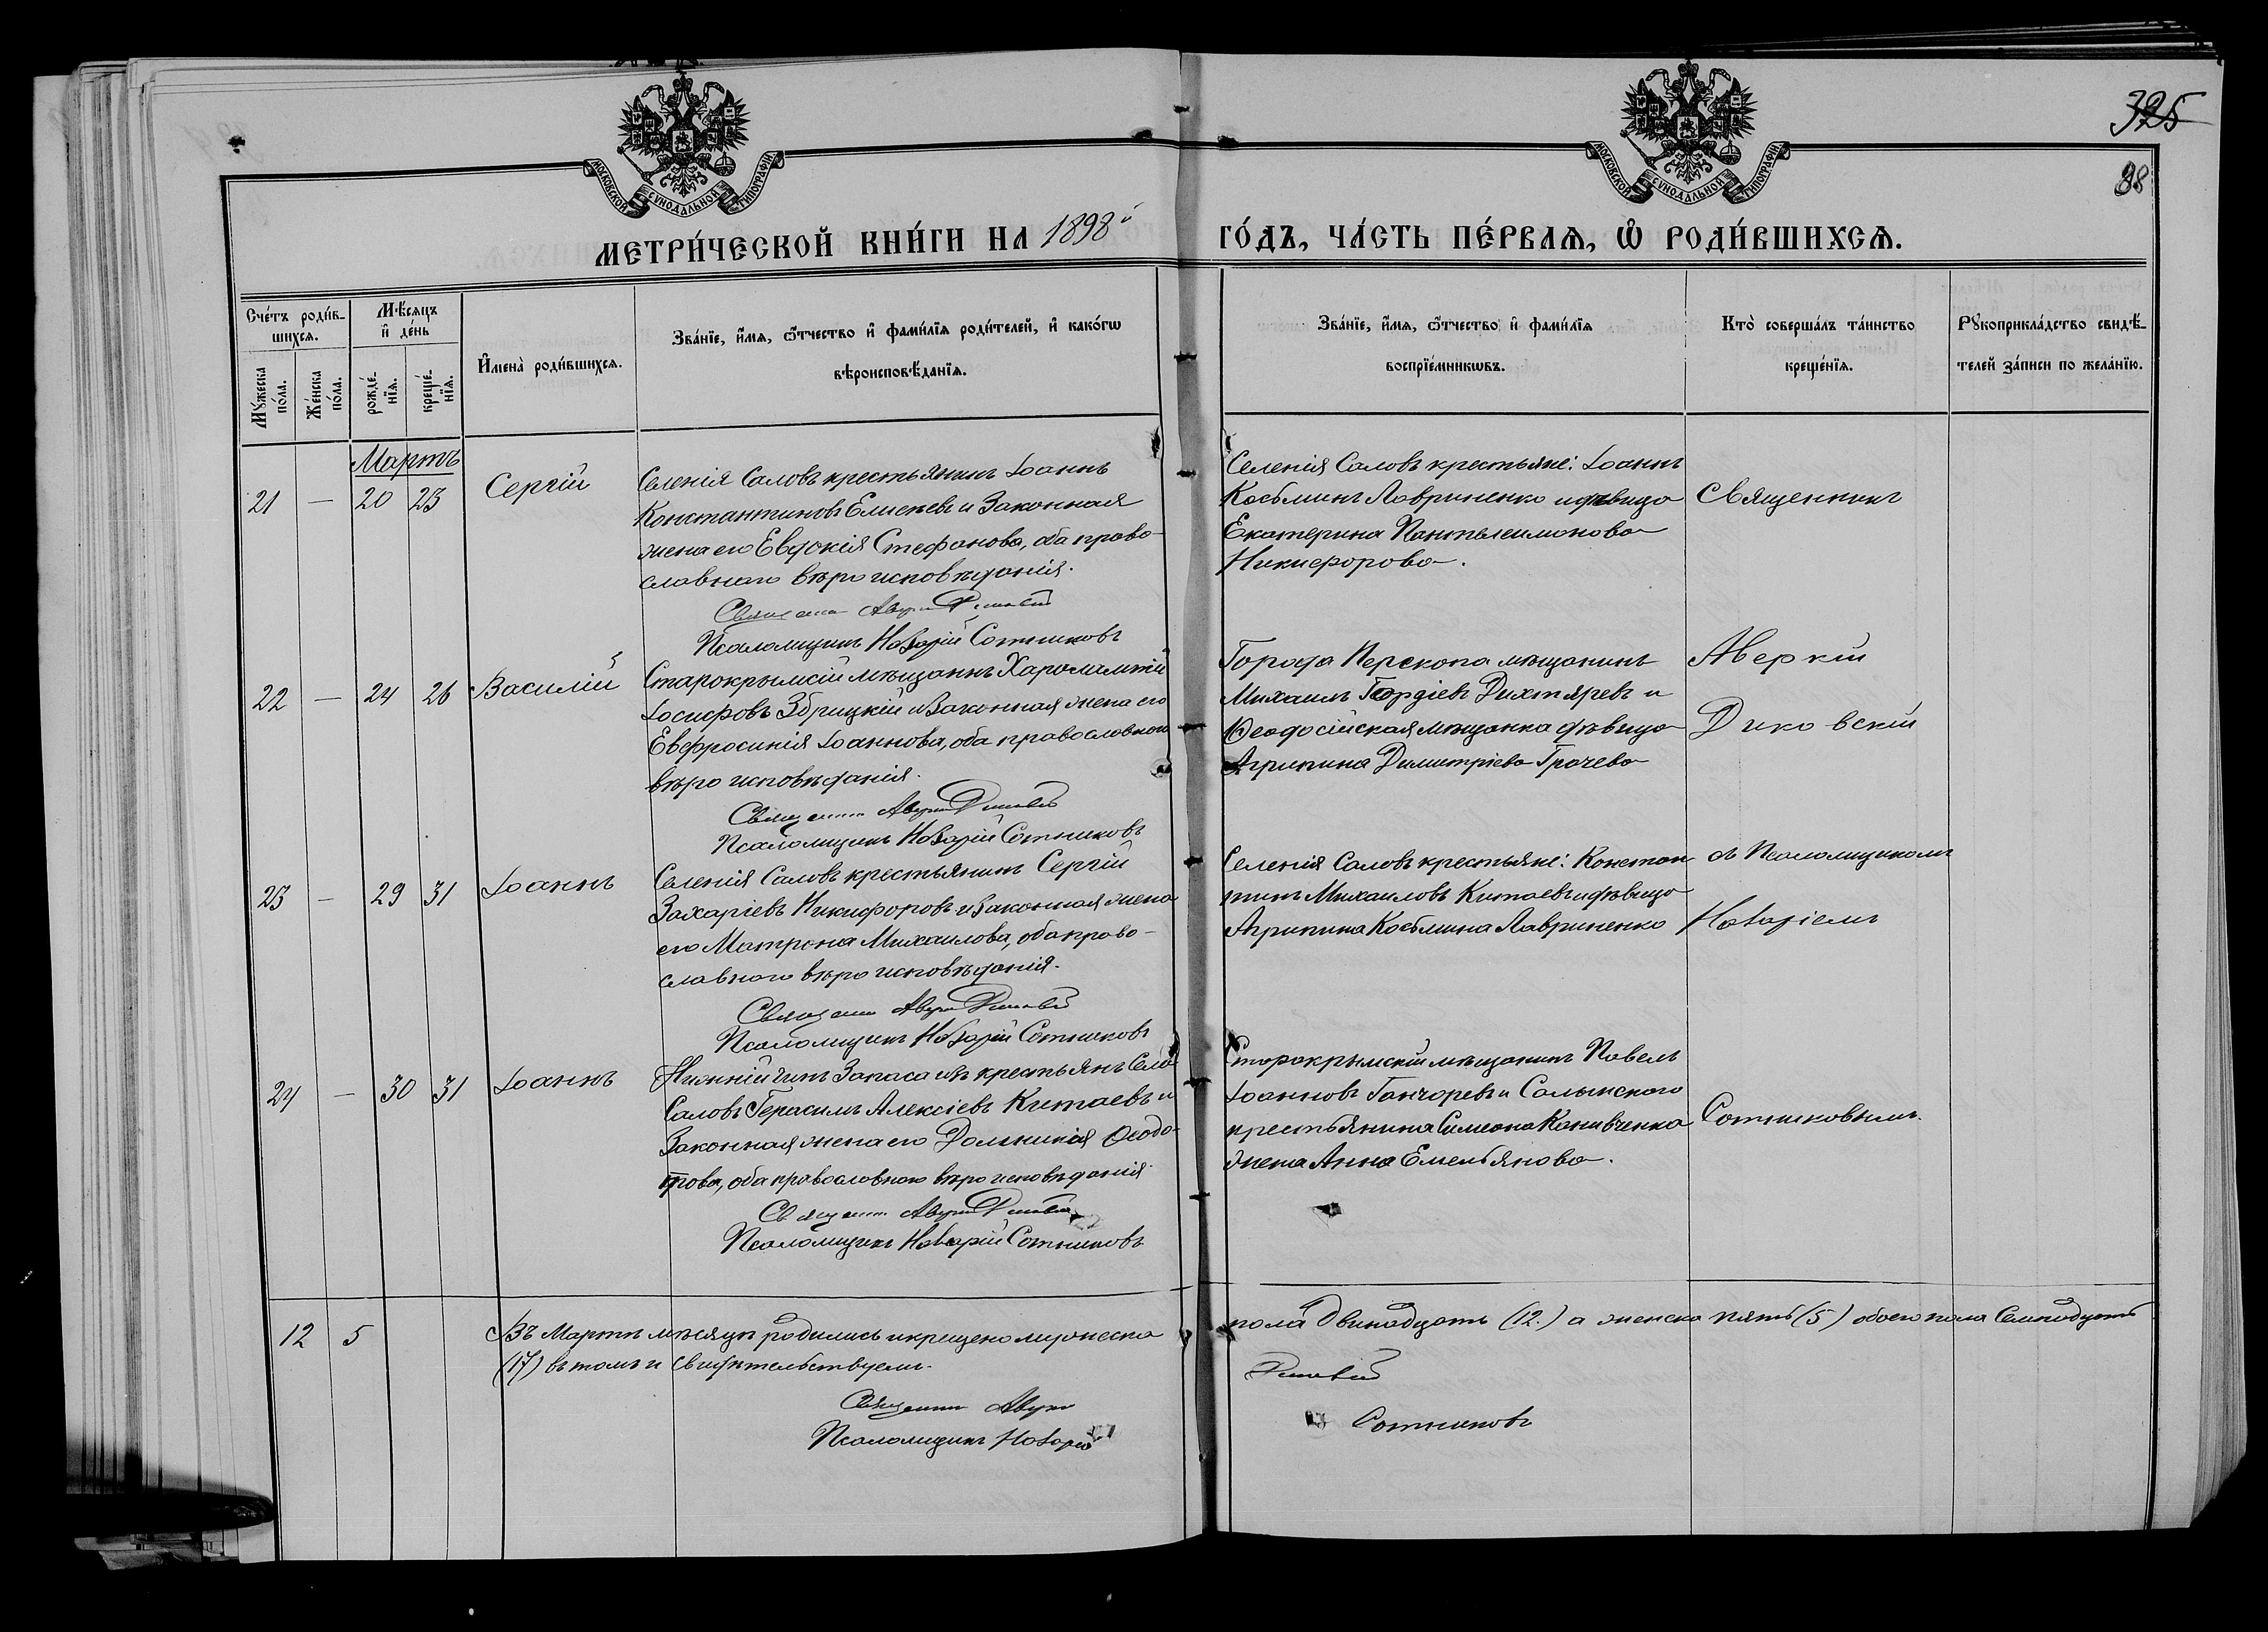 МОСКОВСКОЙ СѴНОДАЛЬНОЙ ТИПОГРАФІИ
МОСКОВСКОЙ СѴНОДАЛЬНОЙ ТИПОГРАФІИ
325
98
МЕТРИ́ЧЕСКОЙ КНИ́ГИ НА 1898й
ГО́ДЪ, ЧА́СТЬ ПЕ́РВАѦ, Ѡ҆ РОДИ́ВШИХСѦ.
Сче́тъ роди́в-
шихсѧ.
Мꙋ́жеска по́ла.
Же́нска по́ла.
Мѣ́сѧцъ
и҆ де́нь
рожде́-нїѧ.
креще́-нїѧ.
И҆мена̀ роди́вшихсѧ.
Зва́нїе, и҆́мѧ, ѻ҆́тчество и҆ фами́лїѧ роди́телей, и҆ како́гѡ
вѣроисповѣ́данїѧ.
Зва́нїе, и҆́мѧ, ѻ҆́тчество и҆ фами́лїѧ
воспрїе́мникѡвъ.
Кто̀ соверша́лъ та́инство
креще́нїѧ.
Рꙋкоприкла́дство свидѣ́-
телей за́писи по жела́нїю.
Мартъ
21 — 20 25 Сергій
Селенія Саловъ крестьянинъ Іоаннъ
Константиновъ Елисѣевъ и законная
жена его Евдокія Стефанова, оба право-
славнаго вѣроисповѣданія.
Псаломщикъ Назарій Сотниковъ
Селенія Саловъ крестьяне: Іоаннъ
Косьминъ Лавриненко и дѣвица
Екатерина Пантелеимонова
Никифорова.
Священникъ
22 — 24 26 Василій
Старокрымскій мѣщанинъ Харалампій
Іосифовъ Збрицкій и законная жена его
Евфросинія Іоаннова, оба православнаго
вѣроисповѣданія.
Псаломщикъ Назарій Сотниковъ
Города Перекопа мѣщанинъ
Михаилъ Гордіевъ Дихтяревъ и
Ѳеодосійская мѣщанка дѣвица
Агрипина Димитріева Грачева
Аверкій
Диковскій
23 — 29 31 Іоаннъ
Селенія Саловъ крестьянинъ Сергій
Захаріевъ Никифоровъ и законная жена
его Матрона Михаилова, оба право-
славнаго вѣроисповѣданія.
Псаломщикъ Назарій Сотниковъ
Селенія Саловъ крестьяне: Констан-
тинъ Михаиловъ Китаевъ и дѣвица
Агрипина Косьмина Лавриненко
съ Псаломщикомъ
Назаріемъ
24 — 30 31 Іоаннъ
Нижній чинъ запаса изъ крестьянъ села
Саловъ Герасимъ Алексіевъ Китаевъ и
законная жена его Домникія Ѳеодо-
това, оба православнаго вѣроисповѣданія.
Псаломщикъ Назарій Сотниковъ
Старокрымскій мѣщанинъ Павелъ
Іоанновъ Ганчаревъ и Салынскаго
крестьянина Симеона Канивченка
жена Анна Емельянова.
Сотниковымъ.
12 5
Въ Мартѣ мѣсяцѣ родилось и крещено мужеска
пола двѣнадцать (12.) а женска пять (5) обоего пола семнадцать
(17) въ томъ и свидѣтельствуемъ.
Псаломщикъ Назарій
Сотниковъ